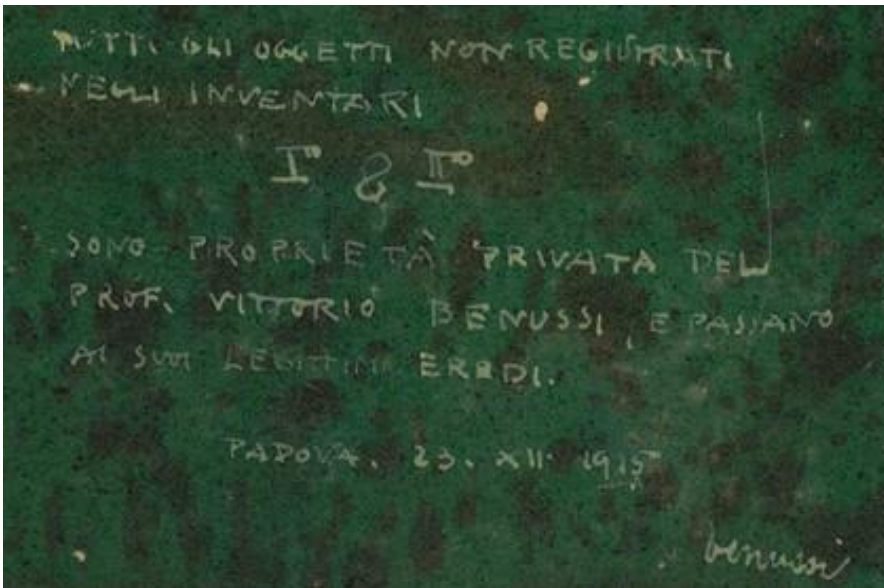 TUTTI GLI OGGETTI NON REGISTRATI
NEGLI INVENTARI
Iº & IIº
SONO PROPRIETÀ PRIVATA DEL
PROF. VITTORIO BENUSSI, E PASSANO
AI SUOI LEGITTIMI EREDI.
PADOVA. 23. XII. 1925
benussi